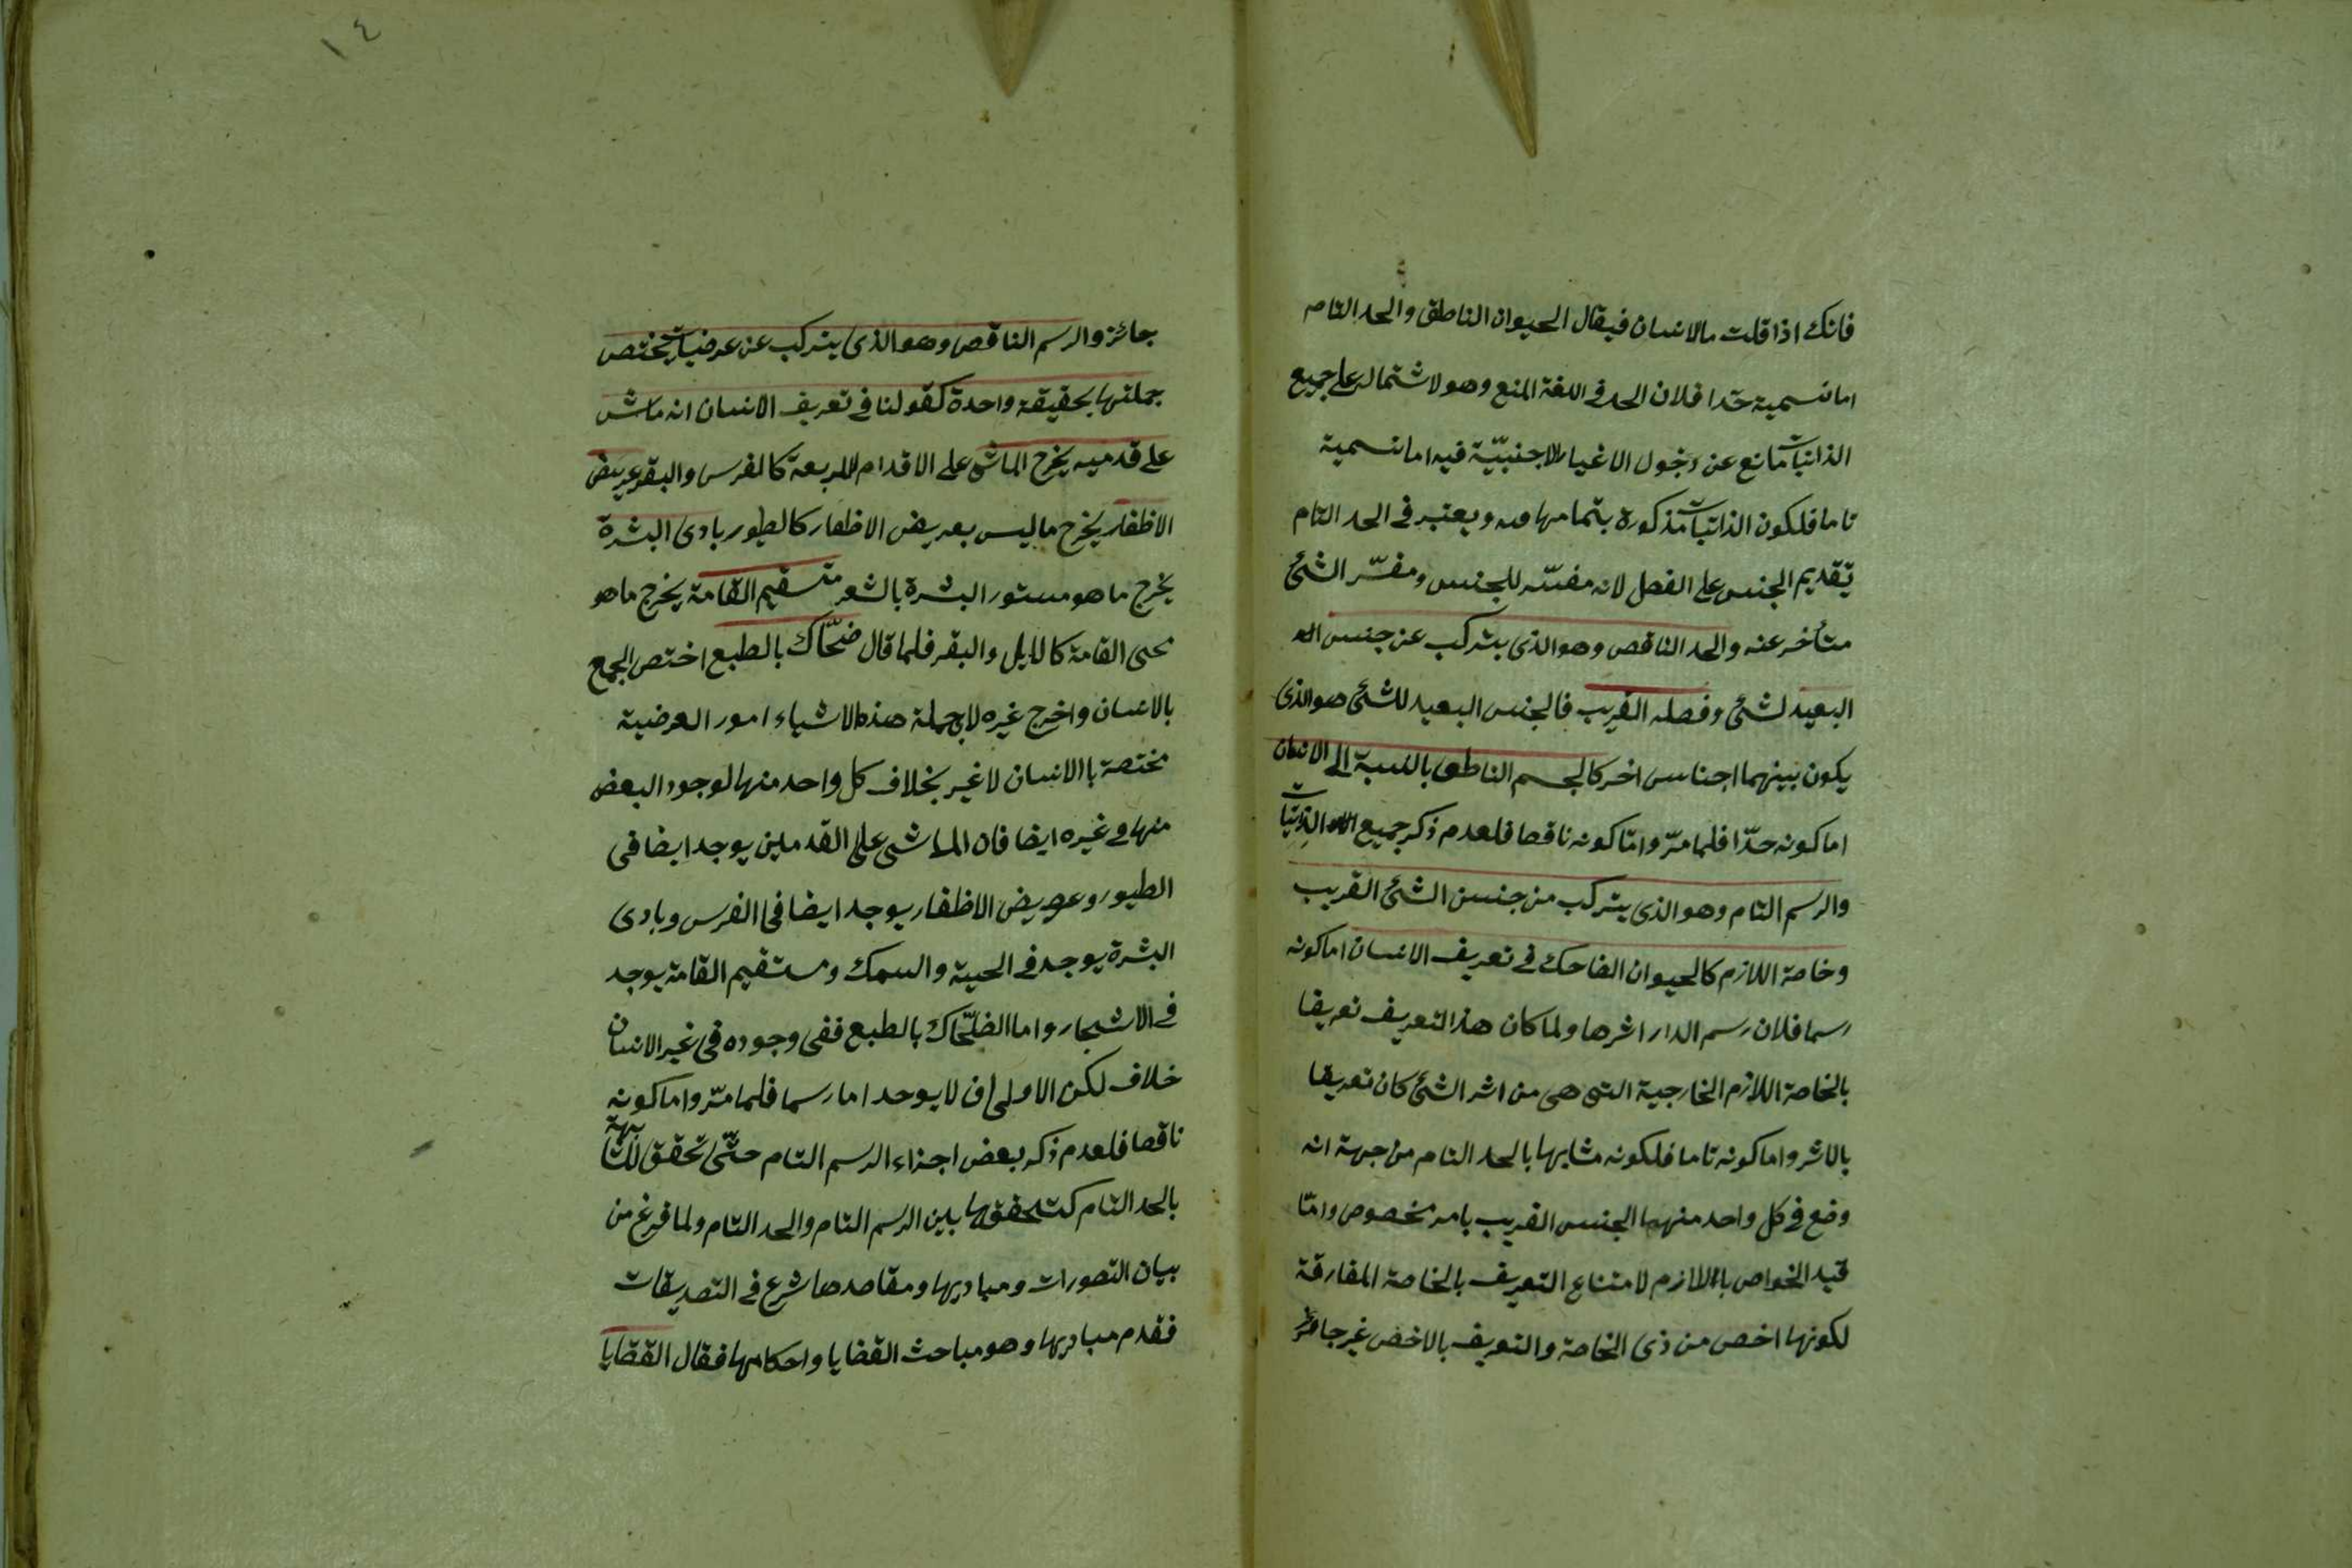 فانك اذا قلت ما الانسان فيقال الحيوان الناطق والحد التام
اما تسمية حدا فلان الحد في اللغة المنع وهو لاشتماله على جميع
الذاتيات مانع عن دخول الاغيار الاجنبيّة فيه اما تسمية
تاما فلكون الذاتيات مذكورة بتمامها فيه ويعتبر في الحد التام
تقديم الجنس على الفصل لانه مفسّر للجنس ومفسّر الشئ
متأخر عنه والحد الناقص وهو الذى يتركب عن جنس
البعيد لشئ وفصله القريب فالجنس البعيد للشئ هو الذى
يكون بينهما اجناس اخر كالجسم الناطق بالنسبة الى الانسان
اما كونه حدّا فلما مرّ وامّا كونه ناقصا فلعدم ذكر جميع الذاتيات
والرسم التام وهو الذى يتركب من جنس الشئ القريب
وخاصة اللازم كالحيوان الضاحك في تعريف الانسان اما كونه
رسما فلان رسم الدار اثرها ولما كان هذا التعريف تعريفا
بالخاصة اللازم الخارجية التى هى من اثر الشئ كان تعريفا
بالاثر واما كونه تاما فلكونه مشابها بالحد التام من جهة انه
وضع في كل واحد منهما الجنس القريب بامر مخصوص وامّا
قيد الخواص باللازم لامتناع التعريف بالخاصة المفارقة
لكونها اخص من ذى الخاصة والتعريف بالاخص غير جائز
١٤
جائز والرسم الناقص وهو الذى يتركب عن عرضيات يختص
جملتها بحقيقة واحدة كقولنا في تعريف الانسان انه ماش
على قدميه يخرج الماشى على الاقدام الاربعة كالفرس والبقر عريض
الاظفار يخرج ما ليس بعريض الاظفار كالطيور بادى البشرة
يخرج ما هو مستور البشرة بالشعر مستقيم القامة يخرج ما هو
نحى القامة كالابل والبقر فلما قال ضحّاك بالطبع اختص الجمع
بالانسان واخرج غيره لان جملة هذه الاشياء امور العرضية
مختصة باالانسان لا غير بخلاف كل واحد منها لوجود البعض
منها في غيره ايضا فان الماشى على القدمين يوجد ايضا فى
الطيور وعريض الاظفار يوجد ايضا فى الفرس وبادى
البشرة يوجد في الحية والسمك ومستقيم القامة يوجد
في الاشجار واما الضحّاك بالطبع ففى وجوده فى غير الانسان
خلاف لكن الاولى ان لا يوجد اما رسما فلما مرّ واما كونه
ناقصا فلعدم ذكر بعض اجزاء الرسم التام حتّى تحقق المشابهة
بالحد التام كتحققها بين الرسم التام والحد التام ولما فرغ من
بيان التصورات ومباديها ومقاصدها شرع في التصديقات
فقدم مباديها وهو مباحث القضايا واحكامها فقال القضايا